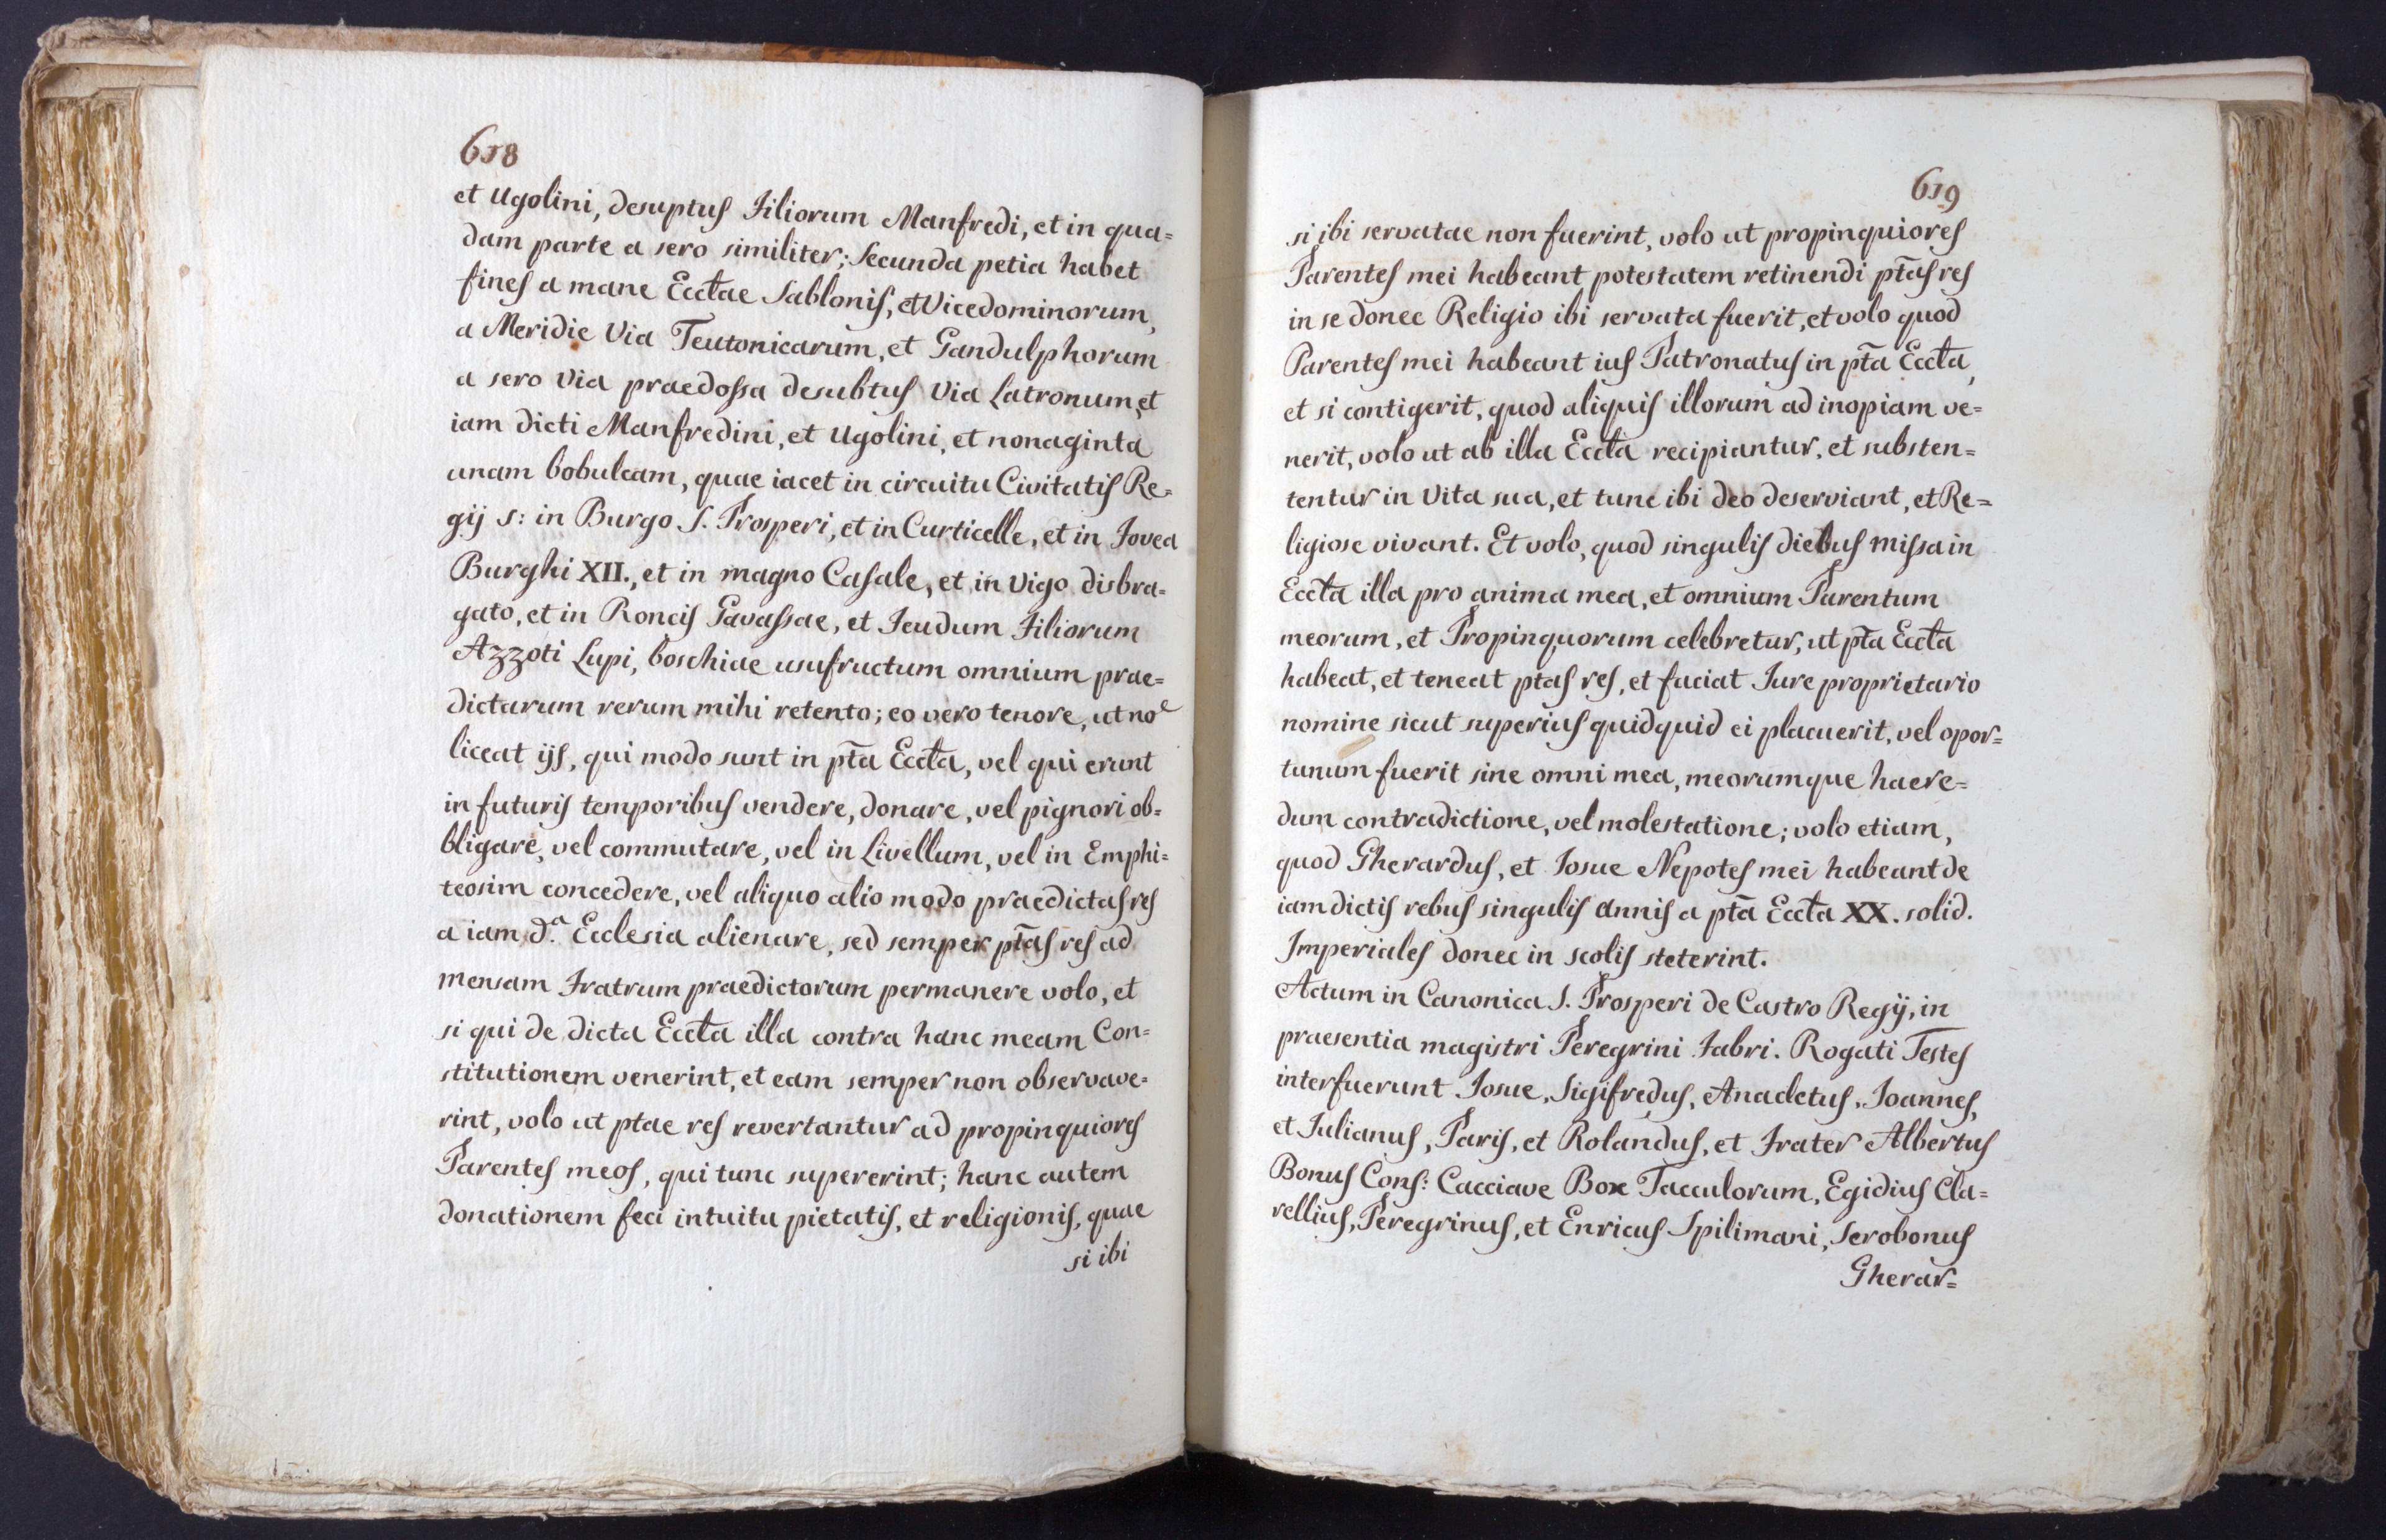 618
et Ugolini, desuptus Filiorum Manfredi, et in qua=
dam parte a sero similiter; Secunda petia habet
fines a mane Ecctae Sablonis, et Vicedominorum,
a Meridie Via Teutonicarum, et Gandulphorum
a sero Via praedossa desubtus Via Latronum, et
iam dicti Manfredini, et Ugolini, et nonaginta
unam bobulcam, quae iacet in circuitu Civitatis Re=
gij s: in Burgo S. Prosperi, et in Curticelle, et in Fovea
Burghi XII., et in magno Casale, et in Vigo disbra=
gato, et in Roncis Gavassae, et Feudum Filiorum
Azzoti Lupi, boschiae usufructum omnium prae=
dictarum rerum mihi retento; eo vero tenore, ut noe
liceat ijs, qui modo sunt in pta Eccta, vel qui erunt
in futuris temporibus vendere, donare, vel pignori ob=
bligare, vel commutare, vel in Livellum, vel in Emphi=
teosim concedere, vel aliquo alio modo praedictas res
a iam d.a Ecclesia alienare, sed semper ptas res ad
mensam Fratrum praedictorum permanere volo, et
si qui de dicta Eccta illa contra hanc meam Con=
stitutionem venerint, et eam semper non observave=
rint, volo ut ptae res revertantur ad propinquiores
Parentes meos, qui tunc supererint; hanc autem
donationem feci intuitu pietatis, et religionis, quae
si ibi
619
si ibi servatae non fuerint, volo ut propinquiores
Parentes mei habeant potestatem retinendi ptas res
in se donec Religio ibi servata fuerit, et volo quod
Parentes mei habeant ius Patronatus in pta Eccta,
et si contigerit, quod aliquis illorum ad inopiam ve=
nerit, volo ut ab illa Eccta recipiantur, et substen=
tentur in Vita sua, et tunc ibi deo deserviant, et Re=
ligiose vivant. Et volo, quod singulis diebus Missa in
Eccta illa pro anima mea, et omnium Parentum
meorum, et Propinquorum celebretur, ut pta Eccta
habeat, et teneat ptas res, et faciat Iure proprietario
nomine sicut superius quidquid ei placuerit, vel opor=
tunum fuerit sine omni mea, meorumque haere=
dum contradictione, vel molestatione; volo etiam,
quod Gherardus, et Iosue Nepotes mei habeant de
iam dictis rebus singulis Annis a pta Eccta XX. solid.
Imperiales donec in scolis steterint.
Actum in Canonica S. Prosperi de Castro Regij, in
praesentia magistri Peregrini Fabri. Rogati Testes
interfuerunt Iosue, Sigifredus, Anacletus, Ioannes,
et Iulianus, Paris, et Rolandus, et Frater Albertus
Bonus Cons: Cacciave Box Tacculorum, Egidius Cla=
rellius, Peregrinus, et Enricus Spilimani, Serobonus
Gherar=